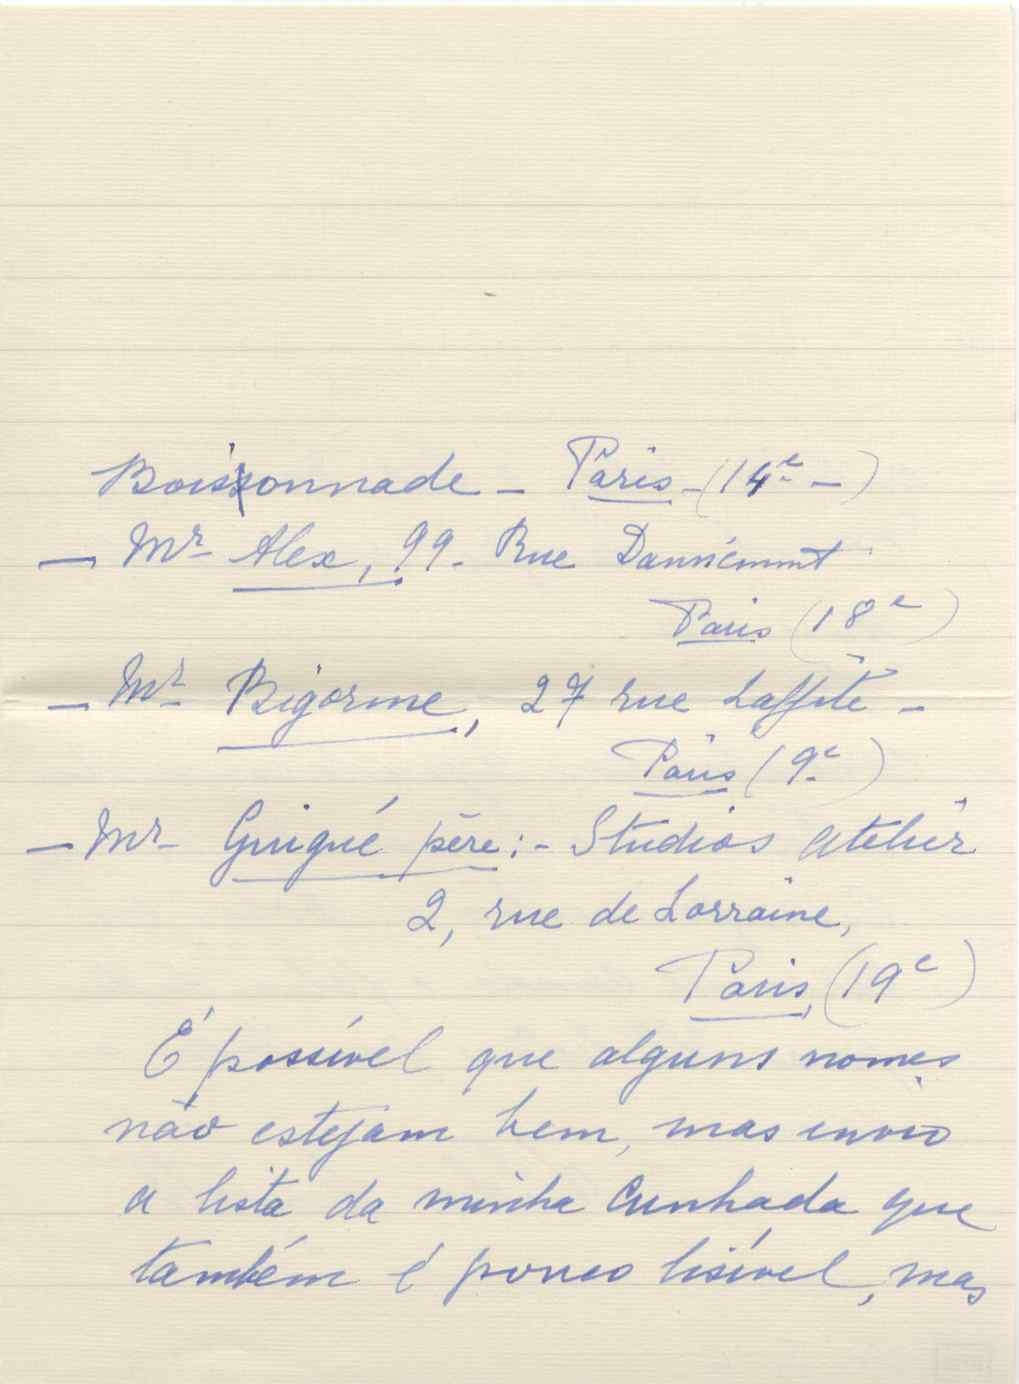 Boissonnade - Paris - (14e -)
- Mr Alex, 99 - Rue Damrémont
Paris (18e)
- Mr Bigorme, 27 rue Laffite -
Paris (9e)
- Mr Guigué père : - Studios Atelier
2, rue de Lorraine,
Paris, (19e)
É possível que alguns nomes
não estejam bem, mas envio
a lista da minha Cunhada que
também é pouco lisível, mas